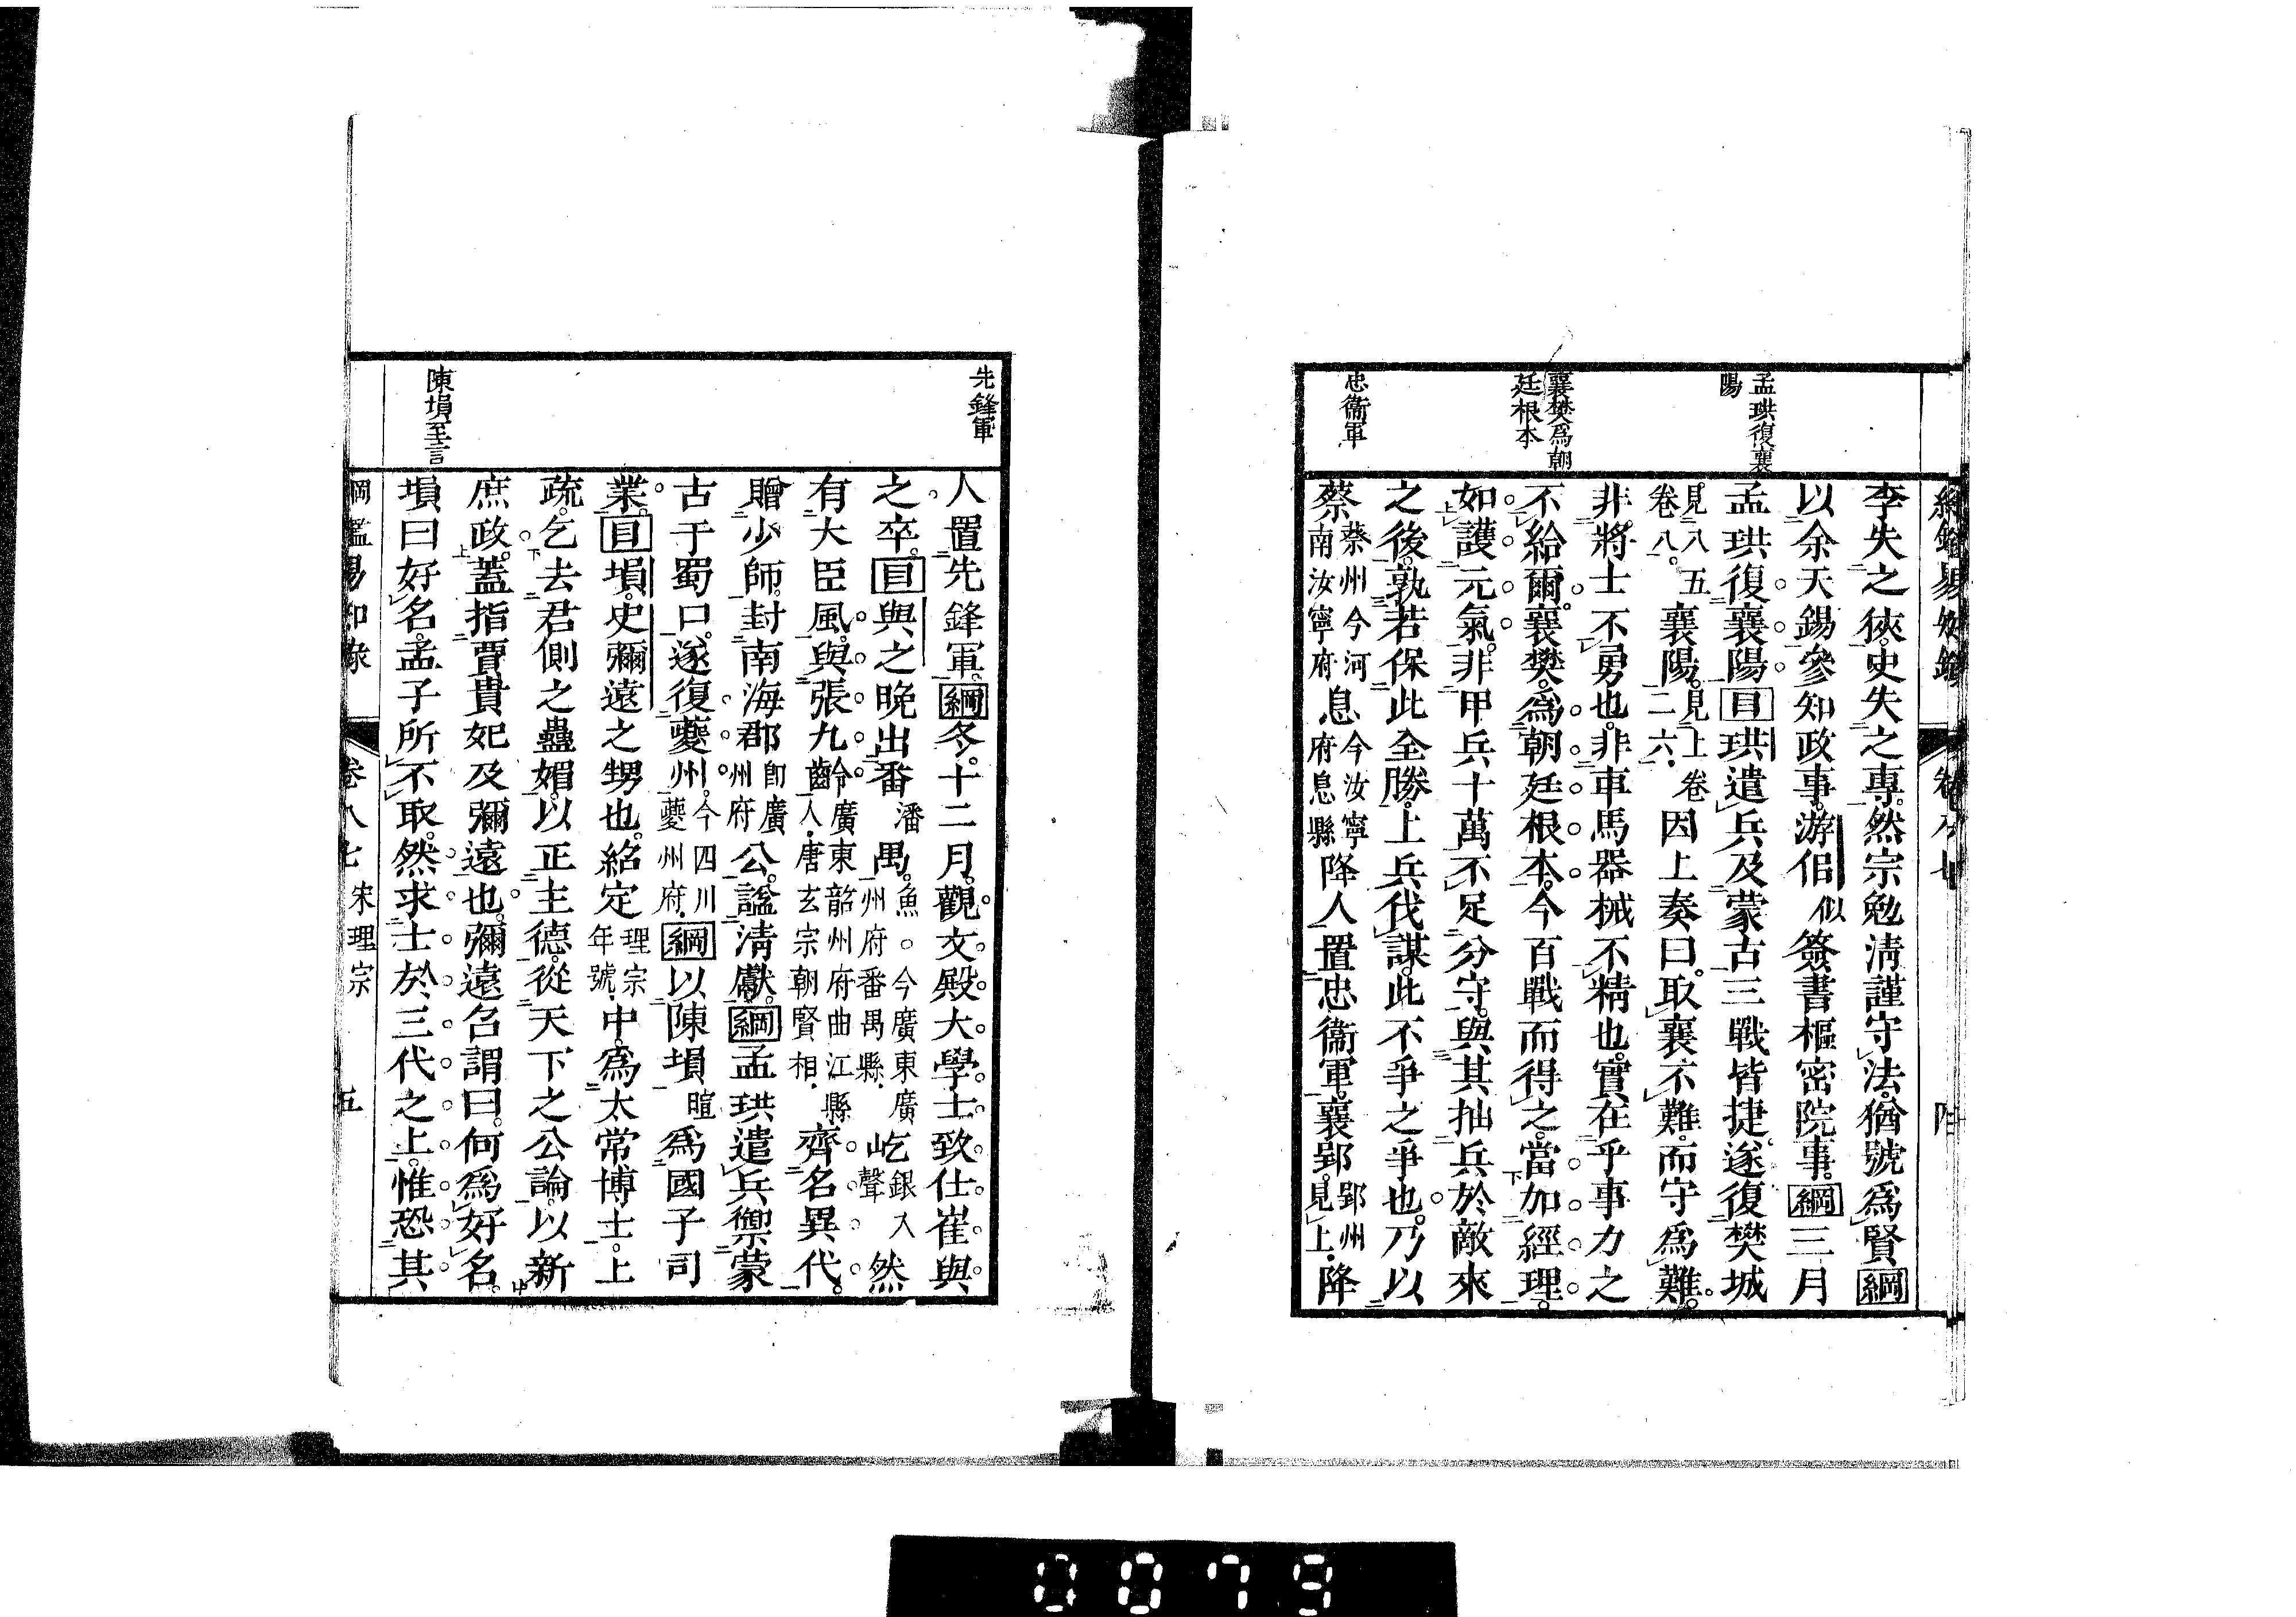 綱鑑易知錄
卷八七
孟珙復襄
陽
襄樊爲朝
廷根本
忠衞軍
李失之狹史失之專然宗勉淸謹守法猶號爲賢綱
以余天錫參知政事游侣似簽書樞密院事綱三月
孟珙復襄陽目珙遣兵及蒙古三戰皆捷遂復樊城
見八五卷八襄陽見上卷二六因上奏曰取襄不難而守爲難
非將士不勇也非車馬器械不精也實在乎事力之
不給爾襄樊爲朝廷根本今百戰而得之當加經理
如護元氣非甲兵十萬不足分守與其抽兵於敵來
之後孰若保此全勝上兵伐謀此不爭之爭也乃以
蔡蔡州今河南汝寧府息今汝寧府息縣降人置忠衞軍襄郢郢州見上降
先鋒軍
陳塤至言
人置先鋒軍綱冬十二月觀文殿大學士致仕崔與
之卒目與之晚出番潘禺魚。今廣東廣州府番禺縣屹銀入聲然
有大臣風與張九齡廣東韶州府曲江縣人唐玄宗朝賢相齊名異代
贈少師封南海郡卽廣州府公諡淸獻綱孟珙遣兵禦蒙
古于蜀口遂復夔州今四川夔州府綱以陳塤暄爲國子司
業目塤史彌遠之甥也紹定理宗年號中爲太常博士上
疏乞去君側之蠱媚以正主德從天下之公論以新
庶政蓋指賈貴妃及彌遠也彌遠召謂曰何爲好名
塤曰好名孟子所不取然求士於三代之上惟恐其
綱鑑易知錄
卷八七
宋理宗
五
0079